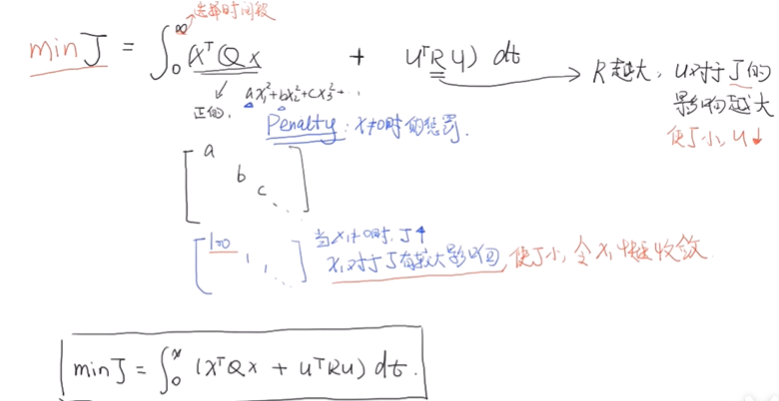 选择时间段
min J = ∫₀^∞ (xᵀQx + uᵀRu) dt → R越大, u对于J的
影响越大
使J小, u↓
正的, ax₁²+bx₂²+cx₃²+…
Penalty: x≠0时的惩罚.
[a
b
c
⋱]
[100 1 1 ⋱] 当x₁≠0时, J↑
x₁对于J有较大影响, 使J小, 令x₁快速收敛
min J = ∫₀^∞ (xᵀQx + uᵀRu) dt.